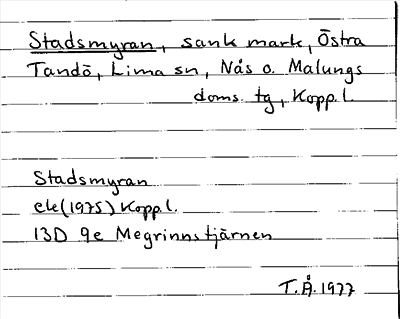 Stadsmyran, sank mark, Östra
Tandö, Lima sn, Nås o. Malungs
doms. tg, Kopp. l.
Stadsmyran
ek (1975) Kopp. l.
13D 9e Megrinnstjärnen
T.Å. 1977